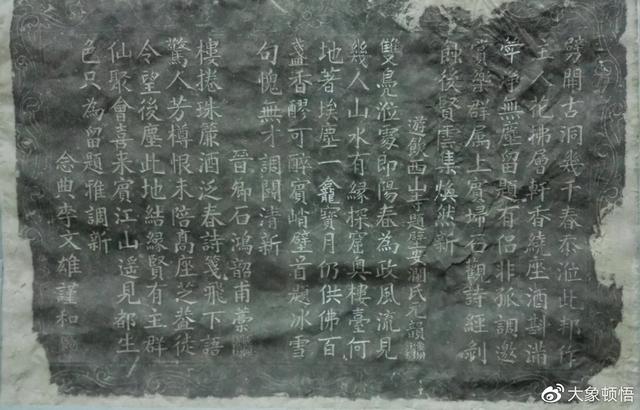 劈開古洞幾千春泰涖此邦作
主人花拂層軒香繞座酒斟滿
斝淨無塵留題有侶非孤調邀
賞樂群属上賓掃石觀詩經剝
蝕後賢雲集煥然新
遊飲西山寺題壁安瀾氏元韻
雙鳧涖處即陽春為政風流見
幾人山水有緣探窟奧樓臺何
地著埃塵一龕寳月仍供佛百
盞香醪可醉賓峭壁昔題冰雪
句愧無才調鬪清新
晉卿石鴻韶甫藁
樓捲珠簾酒泛春詩箋飛下語
驚人芳樽恨未陪高座芝益徒
令望後塵此地結緣賢有主群
仙聚會喜来賓江山遥見都生
色只為留題雅調新
念典李文雄謹和
大象顿悟